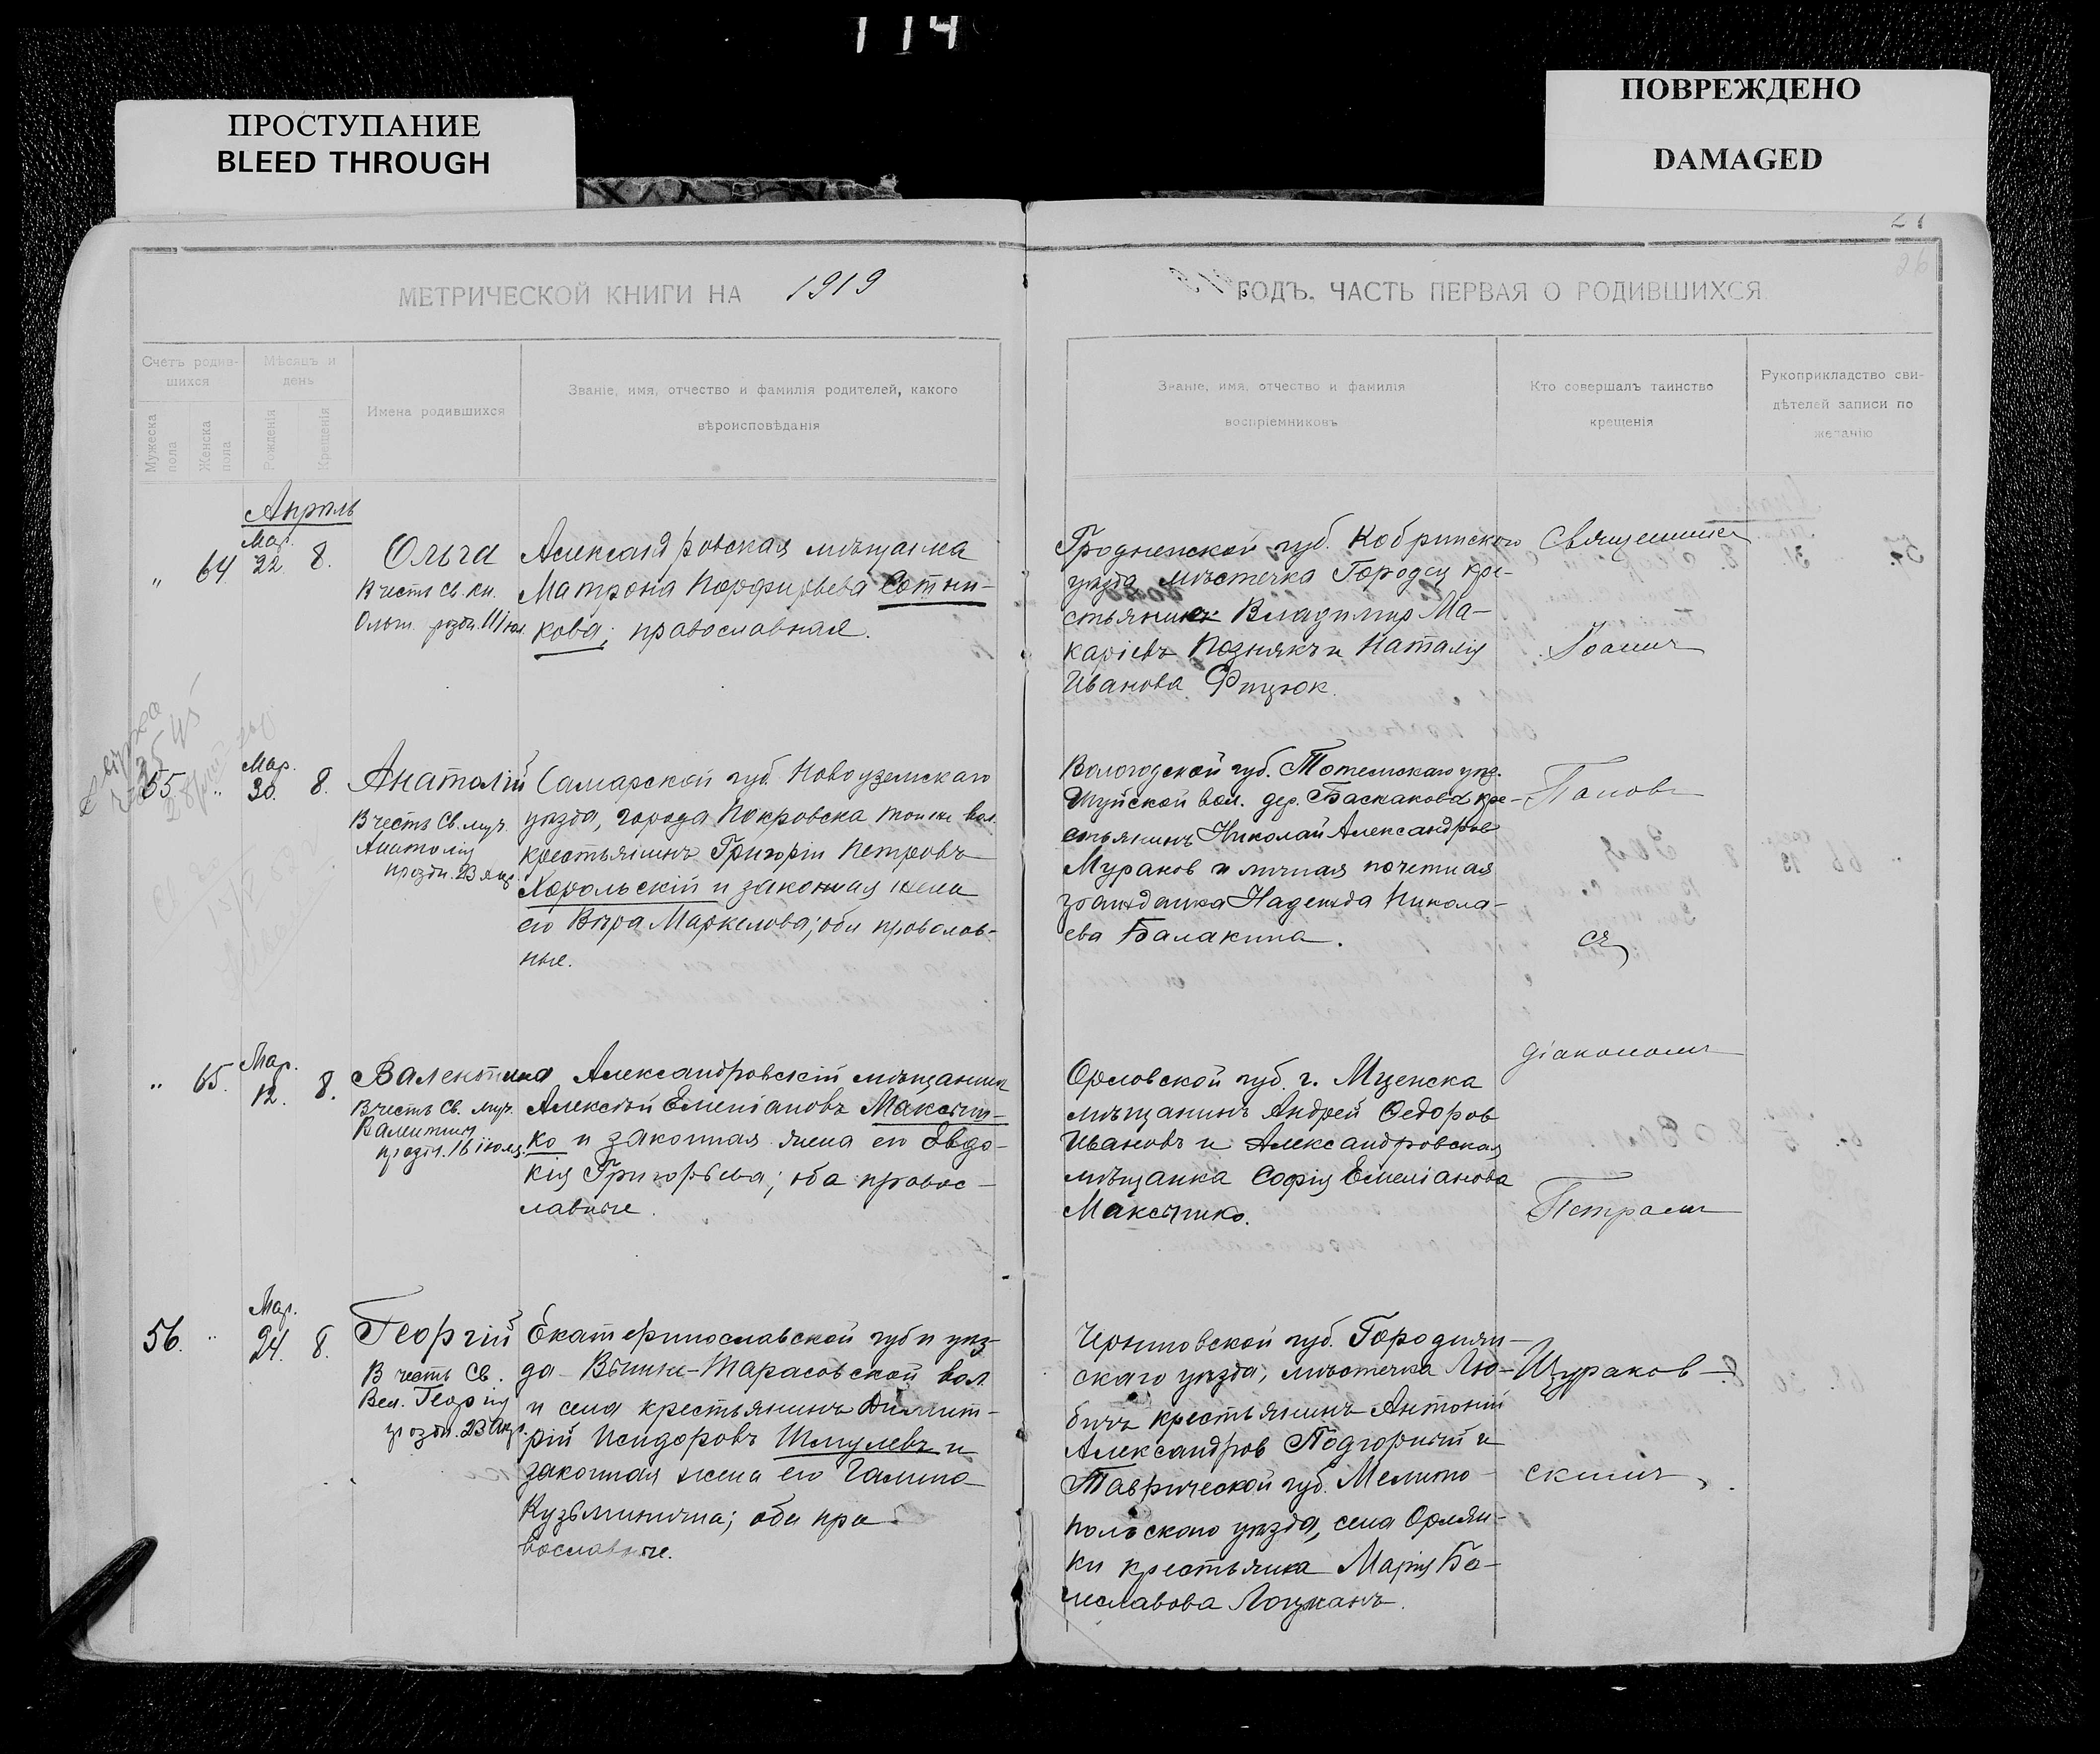 114
ПРОСТУПАНИЕ
BLEED THROUGH
ПОВРЕЖДЕНО
DAMAGED
26
МЕТРИЧЕСКОЙ КНИГИ НА 1919
ГОДЪ. ЧАСТЬ ПЕРВАЯ О РОДИВШИХСЯ
Счетъ родив-
шихся
Мужеска
пола
Женска
пола
Мѣсяцъ и
день
Рожденія
Крещенія
Имена родившихся
Званіе, имя, отчество и фамилія родителей, какого
вѣроисповѣданія
Званіе, имя, отчество и фамилія
воспріемниковъ
Кто совершалъ таинство
крещенія
Рукоприкладство сви-
дѣтелей записи по
желанію
Апрѣль
" 64. Мар. 22. 8.
Ольга
В честь Св. кн.
Ольги праздн. 11 іюл.
Александровская мѣщанка
Матрона Порфирьева Сотни-
кова; православная.
Гродненской губ. Кобринскаго
уѣзда мѣстечка Городец кре-
стьянинъ Владимир Ма-
каріевъ Познякъ и Наталія
Иванова Фицюк.
Священникъ
Іоаннъ
55. " Мар. 30. 8.
Анатолій
В честь Св. муч.
Анатолія
праздн. 23 апр.
Самарской губ. Новоузенскаго
уѣзда, города Покровска той же вол.
крестьянинъ Григорій Петровъ
Хорольскій и законная жена
его Вѣра Маркелова; оба православ-
ные.
Вологодской губ. Тотемскаго уѣзд.
Шуйской вол. дер. Баскакова кре-
стьянинъ Николай Александров
Мураков и личная почетная
гражданка Надежда Никола-
ева Балакина.
Попов
съ
" 65. Мар. 12. 8.
Валентина
В честь Св. муч.
Валентины
праздн. 16 іюля.
Александровскій мѣщанинъ
Алексѣй Емеліановъ Максим-
ко и законная жена его Евдо-
кія Григорьева; оба правос-
лавные.
Орловской губ. г. Мценска
мѣщанинъ Андрей Федоров
Ивановъ и Александровская
мѣщанка Софія Емеліанова
Максимко.
діакономъ
Петромъ
56. " Мар. 24. 8.
Георгій
В честь Св.
Вел. Георгія
праздн. 23 Апр.
Екатеринославской губ и уѣз-
да Тарасовской вол.
и села крестьянинъ Димит-
рій Исидоровъ Шмулевъ и
законная жена его Галина
Кузьминична; оба пра
вославные.
Черниговской губ. Городнян-
скаго уѣзда, мѣстечка Лю-
бичъ крестьянинъ Антоній
Александров Подгорный и
Таврической губ. Мелито-
польскаго уѣзда, села Орлян-
ки крестьянка Марія Бо-
леславова Лоцманъ.
Щураков-
скимъ.